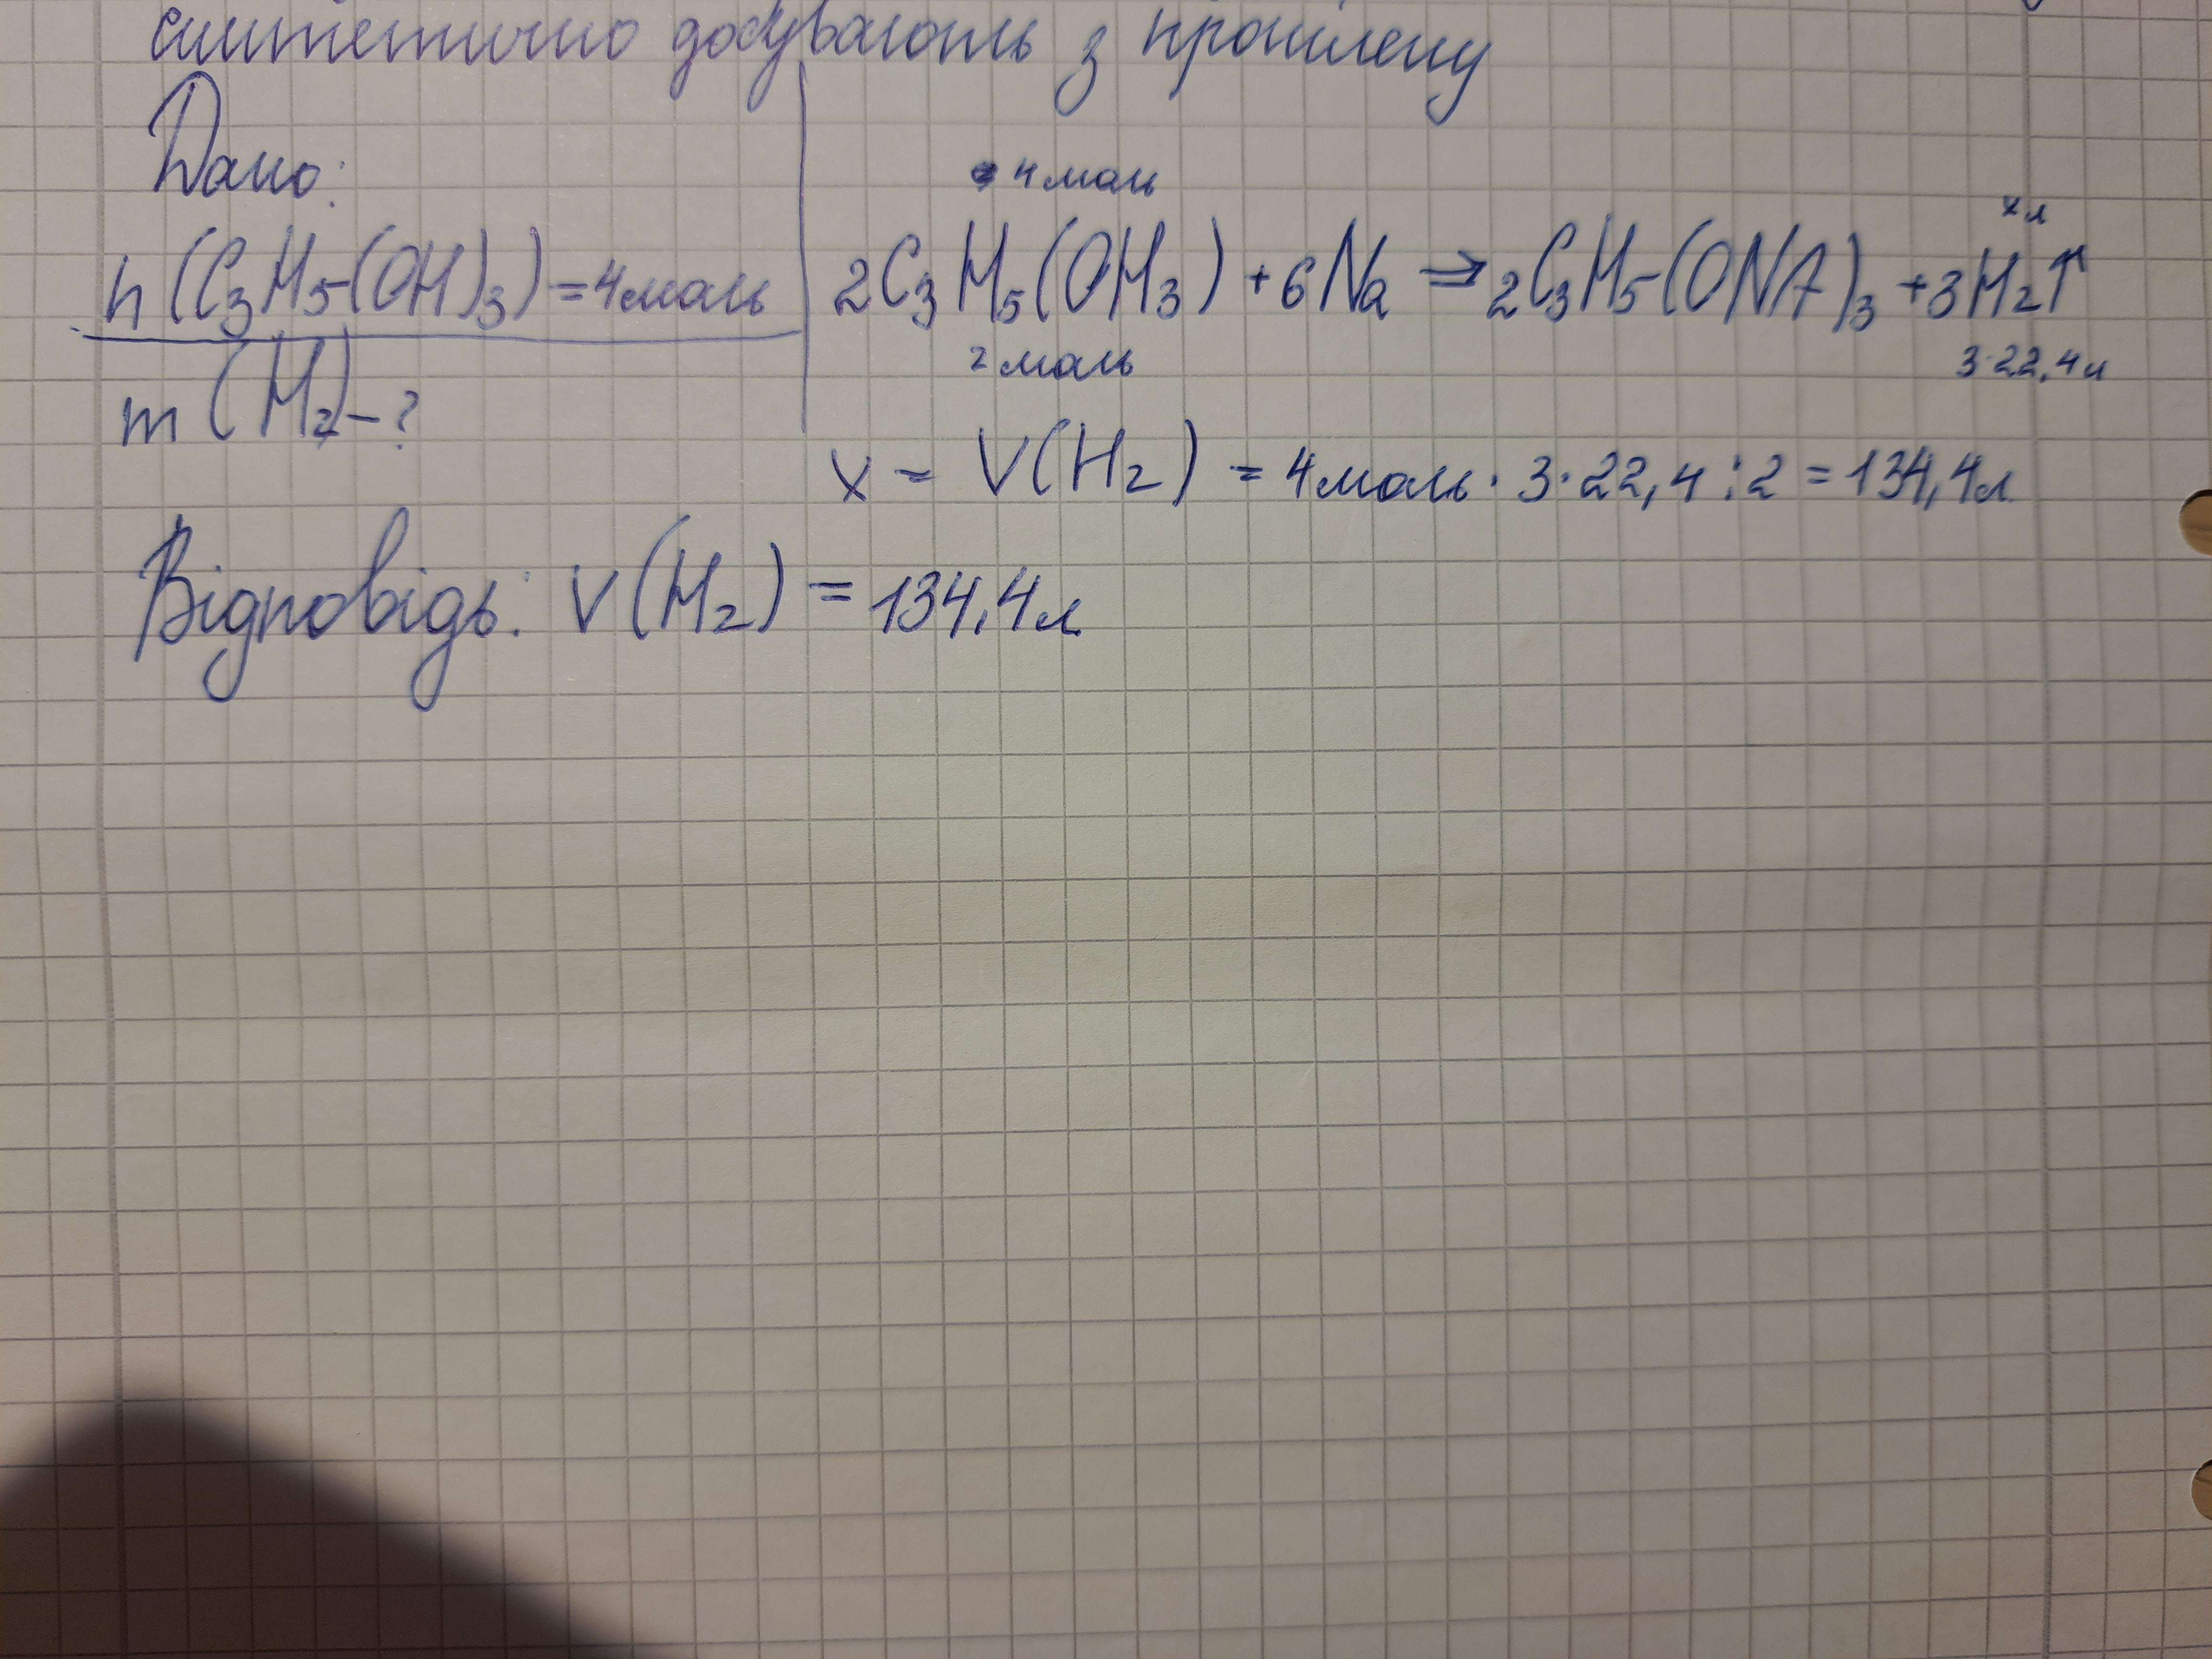 синтетично добувають з пропілену
Дано:
n(C₃H₅(OH)₃)=4моль
m(H₂)-?
4 моль
x л
2C₃H₅(OH₃)+6Na⇒2C₃H₅(ONA)₃+3H₂↑
2 моль
3·22,4л
x = V(H₂) = 4моль·3·22,4:2=134,4л
Відповідь: V(H₂)=134,4л